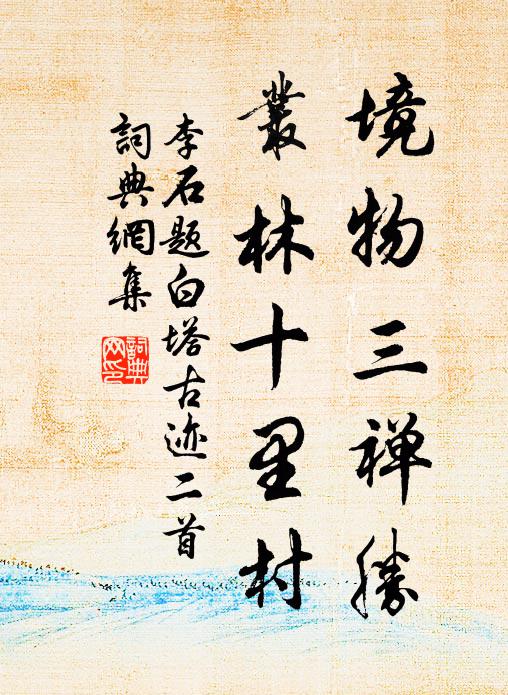 境物三禅勝
叢林十里村
李石题白塔古迹二首
詞典網集
詞典網印